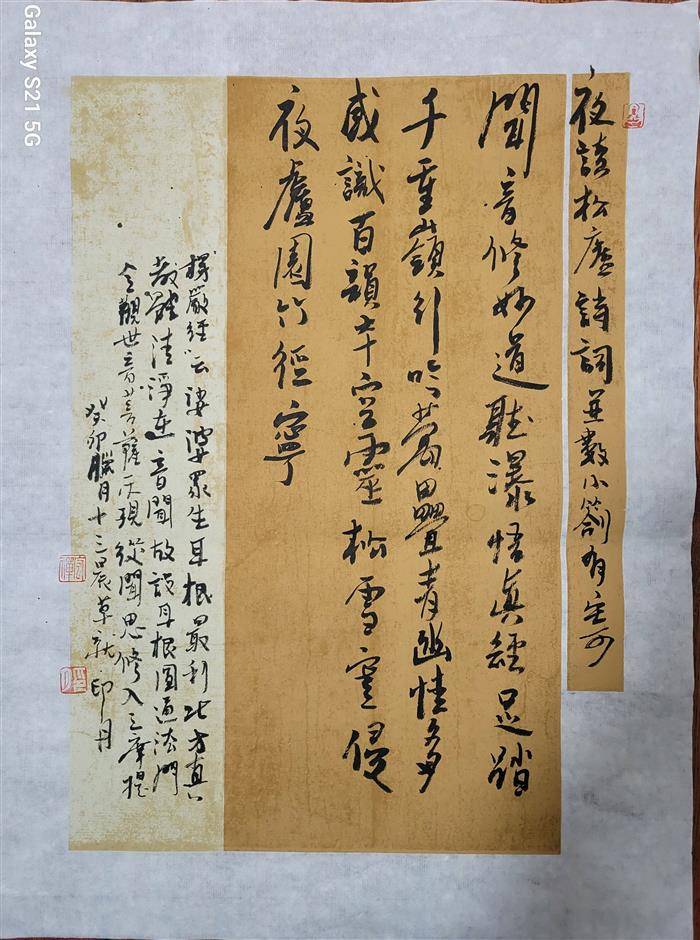 夜讀松廬詩詞並數小劄有寄
聞音修妙道聽瀑悟真經足踏
千重嶺行吟萬疊青幽情多
感識百韻本空靈松雪寒侵
夜廬園竹徑寧
楞嚴經云娑婆眾生耳根最利此方真
教體清淨在音聞故說耳根圓通法門
念觀世音菩薩示現從聞思修入三摩提
癸卯臘月十三晨草就印月
Galaxy S21 5G